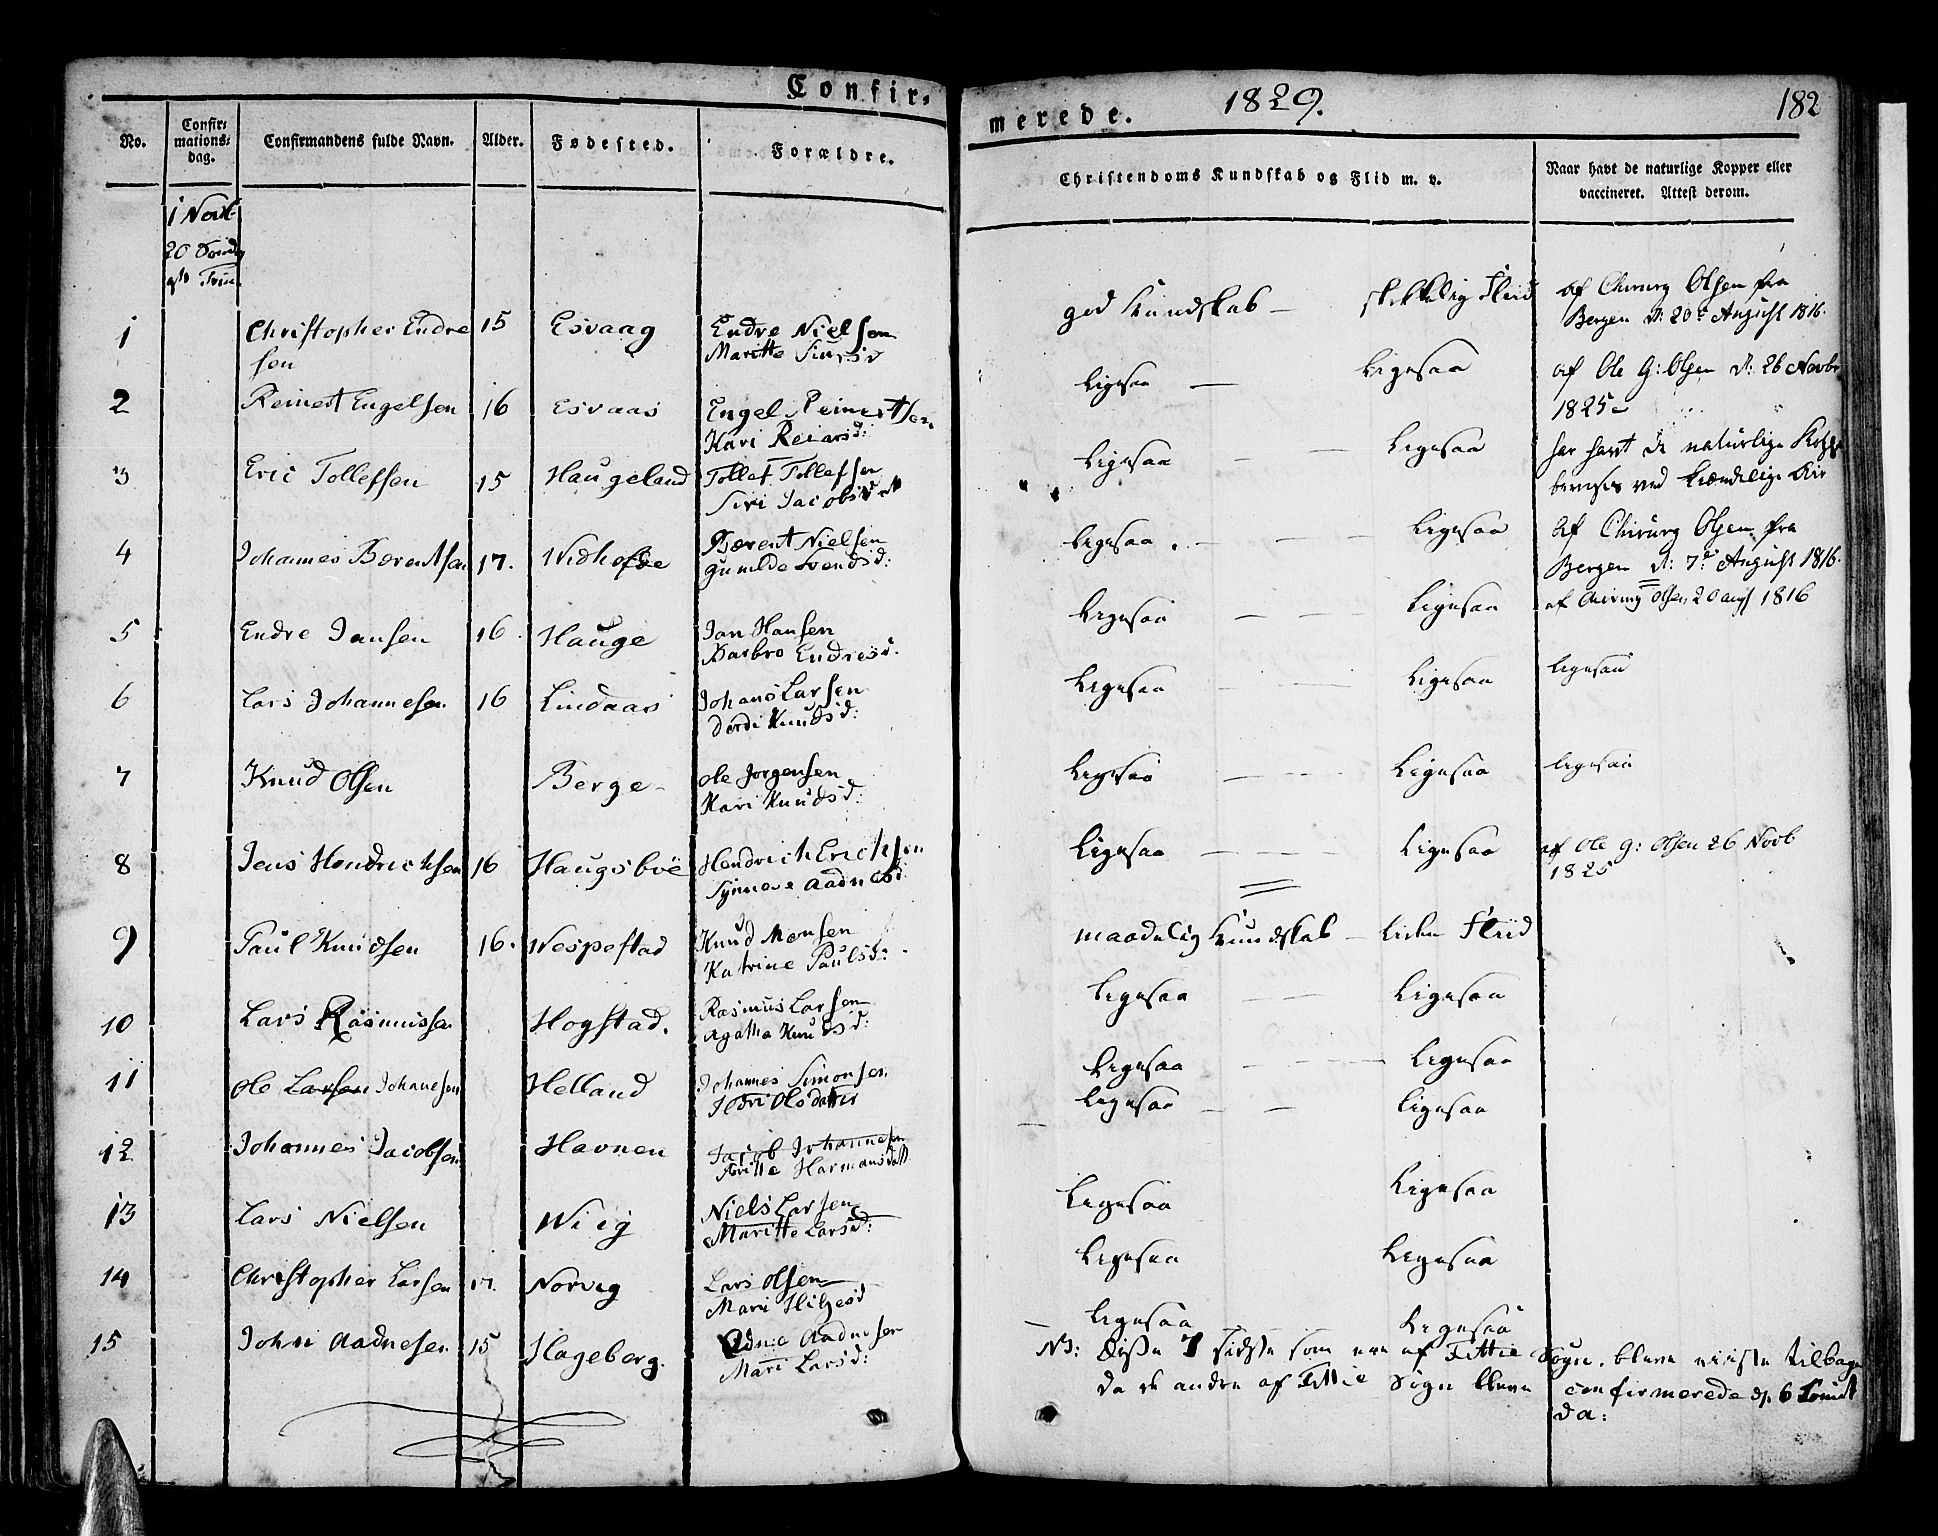 Confir-
merede. 1829. 182
No. Confir-mations-dag. Confirmandens fulde Navn. Alder. Fødested. Forældre. Christendoms Kundskab og Flid m. v. Naar havt de naturlige Kopper eller vaccineret. Attest derom.
1 Novb
20 Søndag
Trin.
god Kundskab — skikkelig Fliid af Chirurg Olsen fra
1 Christopher Endre 15 Esvaag Endre Nielsen Bergen d: 20de August 1816.
sen Maritte
Ligesaa — Ligesaa af Ole G: Olsen d: 26 Novbr
2 Reinert Engelsen 16 Esvaas Engel Reinertsen 1825
Kari
Ligesaa — — Ligesaa har havt de naturlige Kopp
3 Eric Tollefsen 15 Haugeland Tollef Tollefsen bevises ved kiændelige
Siri Jacobsd
Ligesaa . — — — Ligesaa af Chirurg Olsen fra
4 Johannes Berentsen 17. Berent Nielsen Bergen d: 7de August 1816.
Gunilde Svendsd:
Ligesaa — — Ligesaa af Chirurg Olsen 20 aug 1816
5 Endre Jansen 16. Hauge Jan Hansen
Barbro Endresd.
Ligesaa — — Ligesaa ligesaa
6 Lars Johannesen 16 Lindaas Johans Larsen
Dordi Knudsd:
Ligesaa — — Ligesaa ligesaa
7 Knud Olsen Berge - Ole Jorgensen
Kari Knudsd:
Ligesaa — — Ligesaa af Ole G: Olsen 26 Novb
8 Jens Hendrichsen 16 Haugsbøe Hendrich Erichsen 1825
Synneve Aadnesd:
maadelig Kundskab — liden Fliid
9 Paul Knudsen 16. Wespestad Knud Monsen
Katrine Paulsd:
Ligesaa — — Ligesaa
10 Lars Rasmussen Hogstad. Rasmus Larsen
Agatha Knudsd:
Ligesaa — — Ligesaa
11 Ole Larsen Johanesen Helland Johannes Simonsen
Olsdatter
Ligesaa — — Ligesaa
12 Johannes Jacobsen Havnen Jacob Johannesen
Harmansdatt
Ligesaa Ligesaa
13 Lars Nielsen Wiig Niels Larsen
Maritte Larsd:
Ligesaa Ligesaa
14 Christopher Larsen 17. Norvig Lars Olsen
Mari Helgesd
Ligesaa Ligesaa
15 John Aadnesen 15 Hageberg. Adne Aadnesen
Mari Larsd:
NB: Disse 7 sidste som ere af Fittie Sogn, bleve viiste tilbage
da de andre af Fittie Sogn bleve confirmerede d. 6
da: